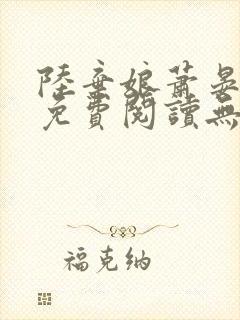 陸棄娘蕭晏
免費閱讀無
福克納